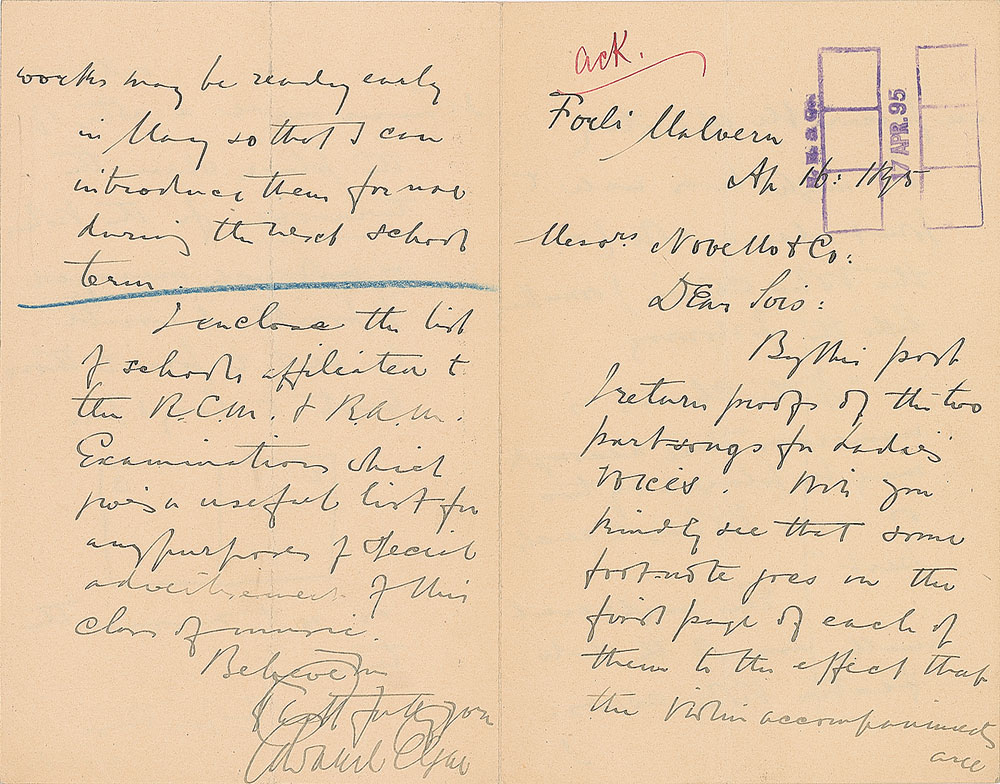 ack.
Forli Malvern
Ap 16: 1895
17 APR. 95
Messrs Novello & Co:
Dear Sirs:
By this post
I return proofs of the two
part-songs for Ladies
voices. Will you
kindly see that some
foot-note goes on the
first page of each of
them to the effect that
the violin accompaniments
are
works may be ready early
in May so that I can
introduce them for use
during the next school
term.
I enclose the list
of schools affiliated to
the R.C.M. & R.A.M.
Examinations which
gives a useful list for
any purposes of special
advertisement of this
class of music.
Believe me
faithfully yours
Edward Elgar